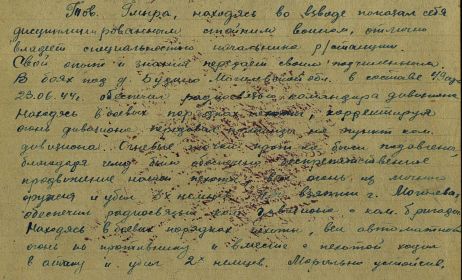 Тов. Гмыра, находясь во взводе показал себя
дисциплинированным стойким воином, отлично
владеет специальностью начальника р/станции.
Свой опыт и знания передает своим подчиненным.
В боях под д. Бу Могилевской обл. в составе
23.06.44г. обеспечил радиосвязь командира дивизиона
Находясь в боевых порядках пехоты, корректируя
огонь дивизиона передавал команды на пункт ком.
дивизиона. Огневые точки прот-ка были подавлены,
благодаря чему было обеспечено беспрепятственное
продвижение нашей пехоты, вел огонь из личного
оружия и убил 3х немцев. При взятии г. Могилева,
обеспечил радиосвязь ком. дивизиона с ком. бригады
Находясь в боевых порядках пехоты вел автоматный
огонь по противнику и вместе с пехотой ходил
в атаку и убил 2х немцев. Морально устойчив,